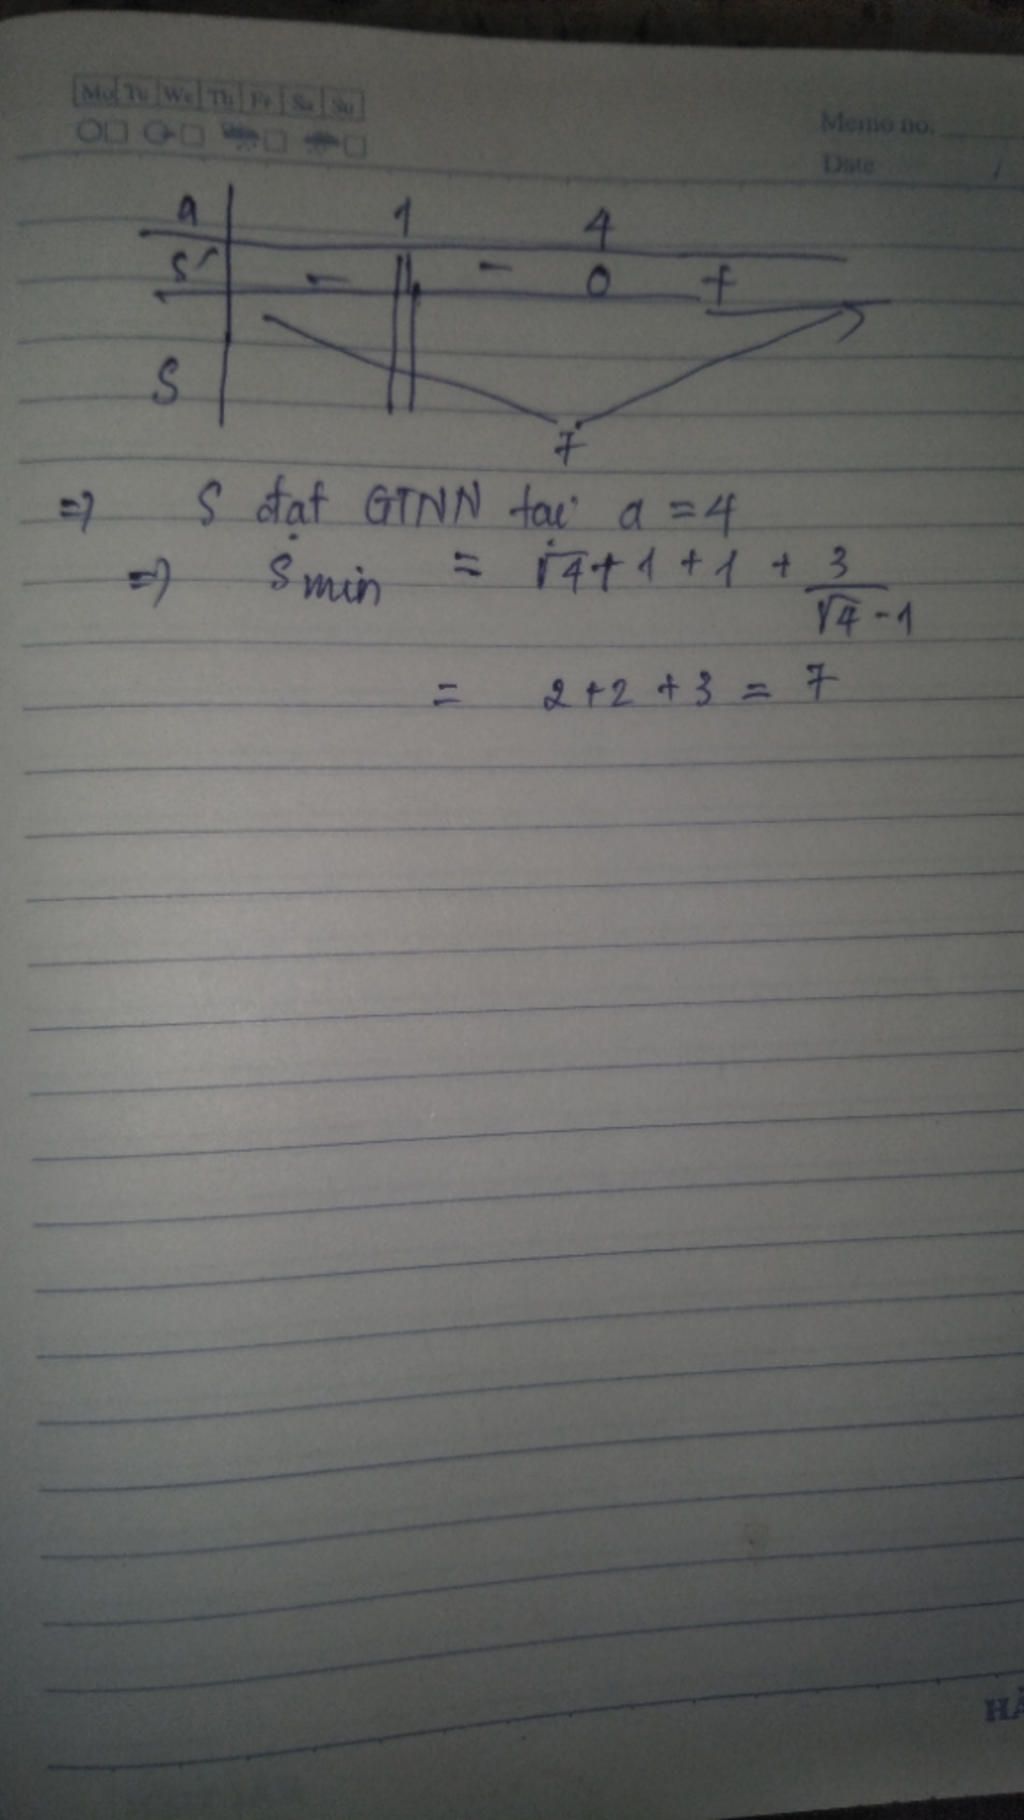 Mo Tu We Th Fr Sa Su
Memo no.
Date /
a 1 4
S' - || - 0 +
S
7
=> S đạt GTNN tại a = 4
=> Smin = √4 + 1 + 1 + 3/(√4 - 1)
= 2 + 2 + 3 = 7